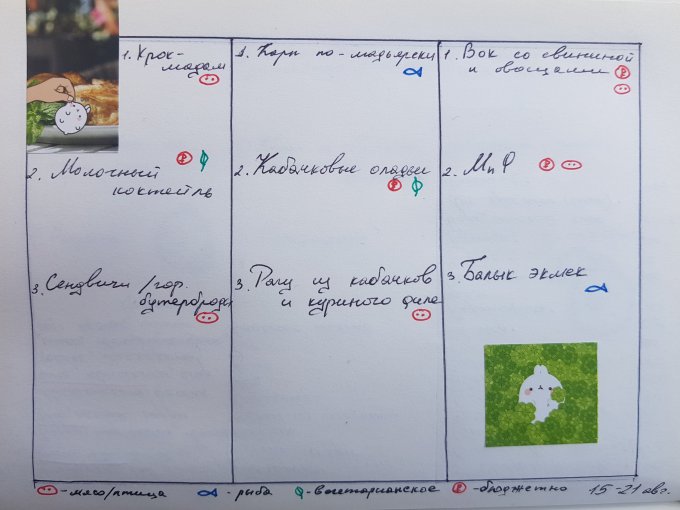 1. Крок-
мадам
2. Молочный
коктейль
3. Сендвичи /гор.
бутерброды
1. Карп по-мадьярски
2. Кабачковые оладьи
3. Рагу из кабачков
и куриного филе
1. Вок со свининой
и овощами
2. МиФ
3. Балык экмек
-мясо/птица -рыба -вегетарианское -бюджетно 15-21 авг.